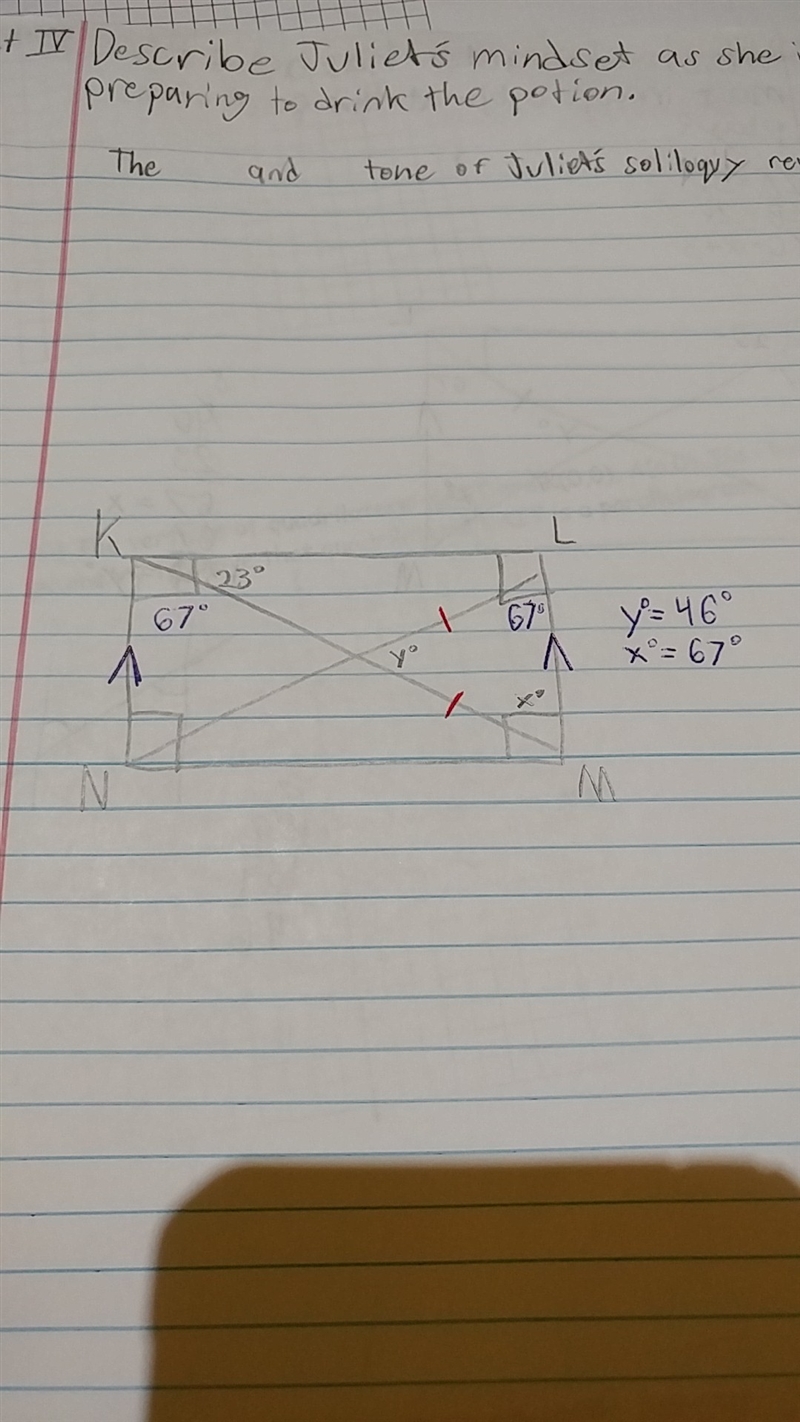 + IV Describe Juliet's mindset as she i
preparing to drink the potion.
The and tone of Juliet's soliloquy rev
K L
23°
67° 67° y°= 46°
y° x°= 67°
x°
N M